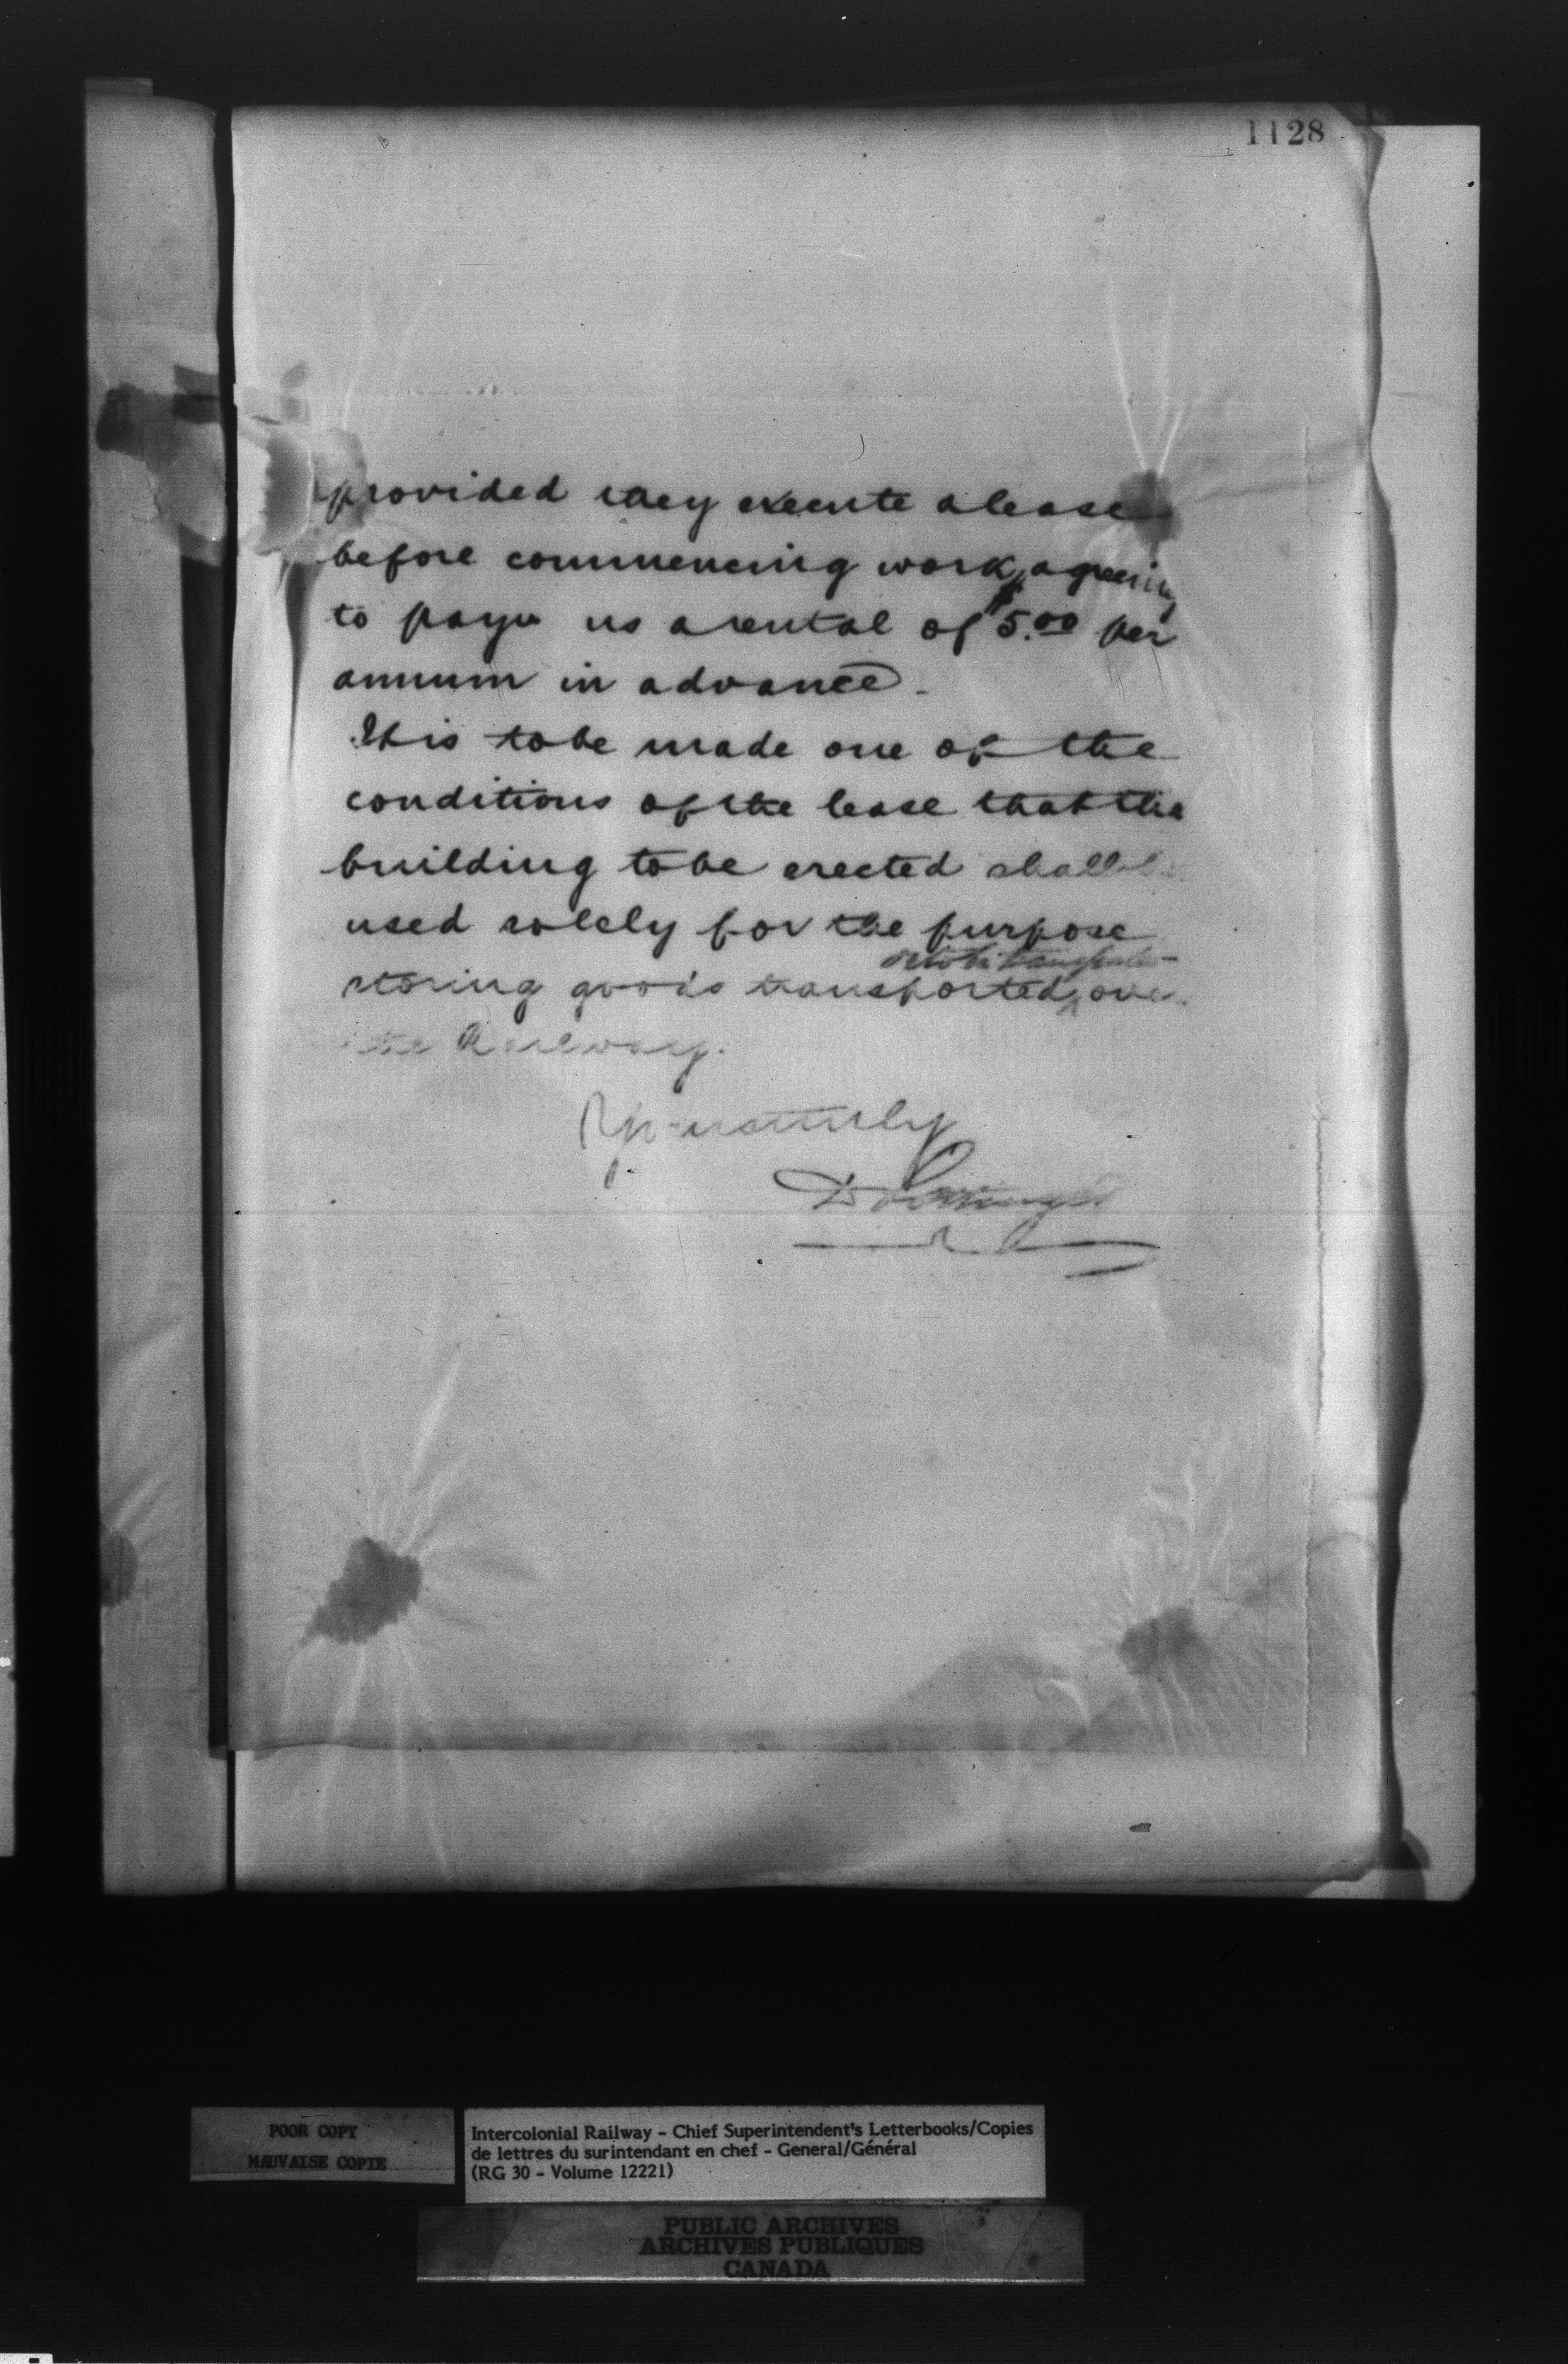 1128
provided they execute a lease
before commencing work, agreeing
to pay us a rental of $5.00 per
annum in advance.
It is to be made one of the
conditions of the lease that the
building to be erected shall be
used solely for the purpose
or to be transported
storing goods transported over
the Railway.
Yours truly
D Pottinger
POOR COPY
MAUVAISE COPIE
Intercolonial Railway - Chief Superintendent's Letterbooks/Copies
de lettres du surintendant en chef - General/Général
(RG 30 - Volume 12221)
PUBLIC ARCHIVES
ARCHIVES PUBLIQUES
CANADA